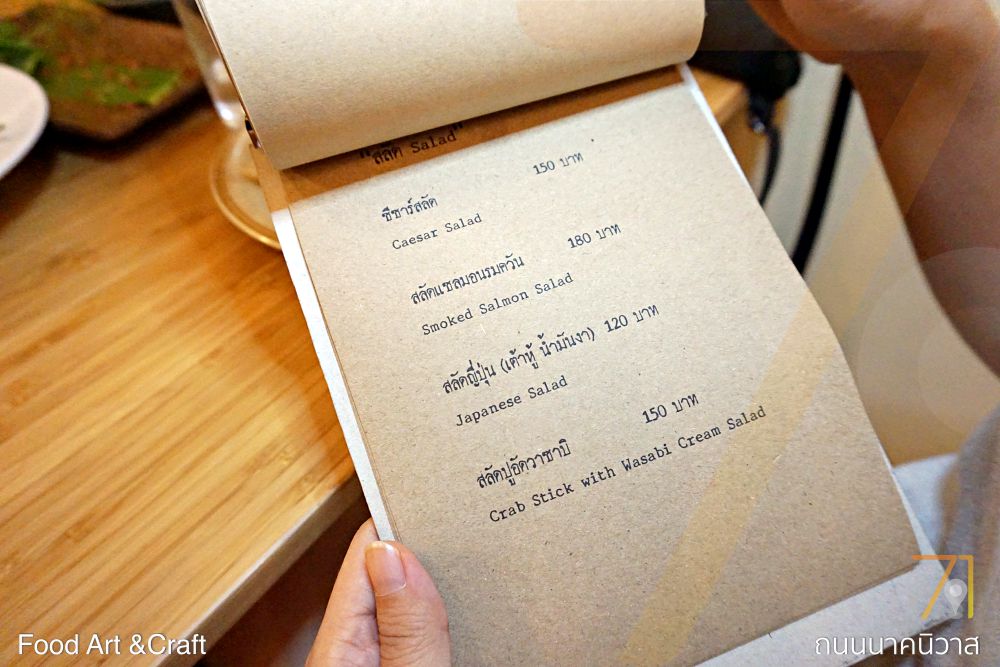 "สลัด Salad"
ซีซาร์สลัด 150 บาท
Caesar Salad
สลัดแซลมอนรมควัน 180 บาท
Smoked Salmon Salad
สลัดญี่ปุ่น (เต้าหู้ น้ำมันงา) 120 บาท
Japanese Salad
สลัดปูอัดวาซาบิ 150 บาท
Crab Stick with Wasabi Cream Salad
71
Food Art &Craft
ถนนนาคนิวาส